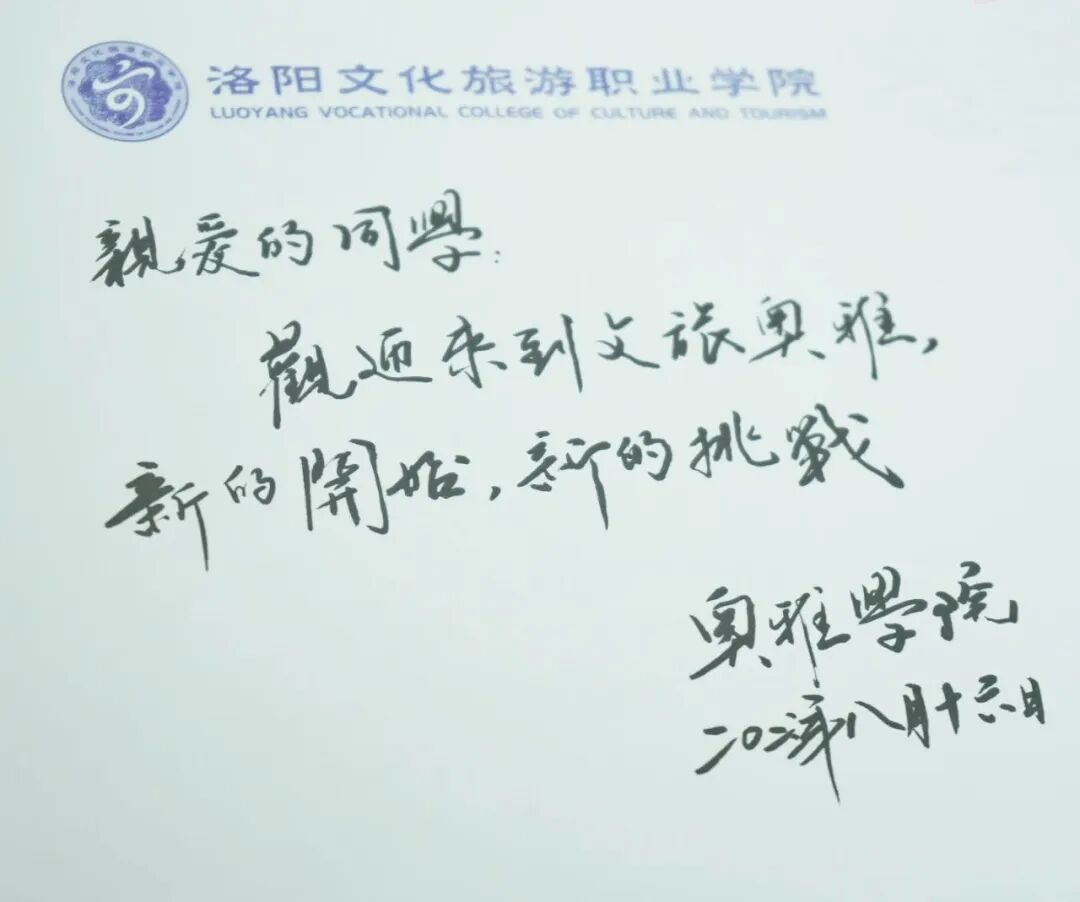 洛阳文化旅游职业学院
LUOYANG VOCATIONAL COLLEGE OF CULTURE AND TOURISM
親爱的同學:
觀迎来到文旅奥雅,
新的開始,新的挑戰
奥雅學院
八月十六日